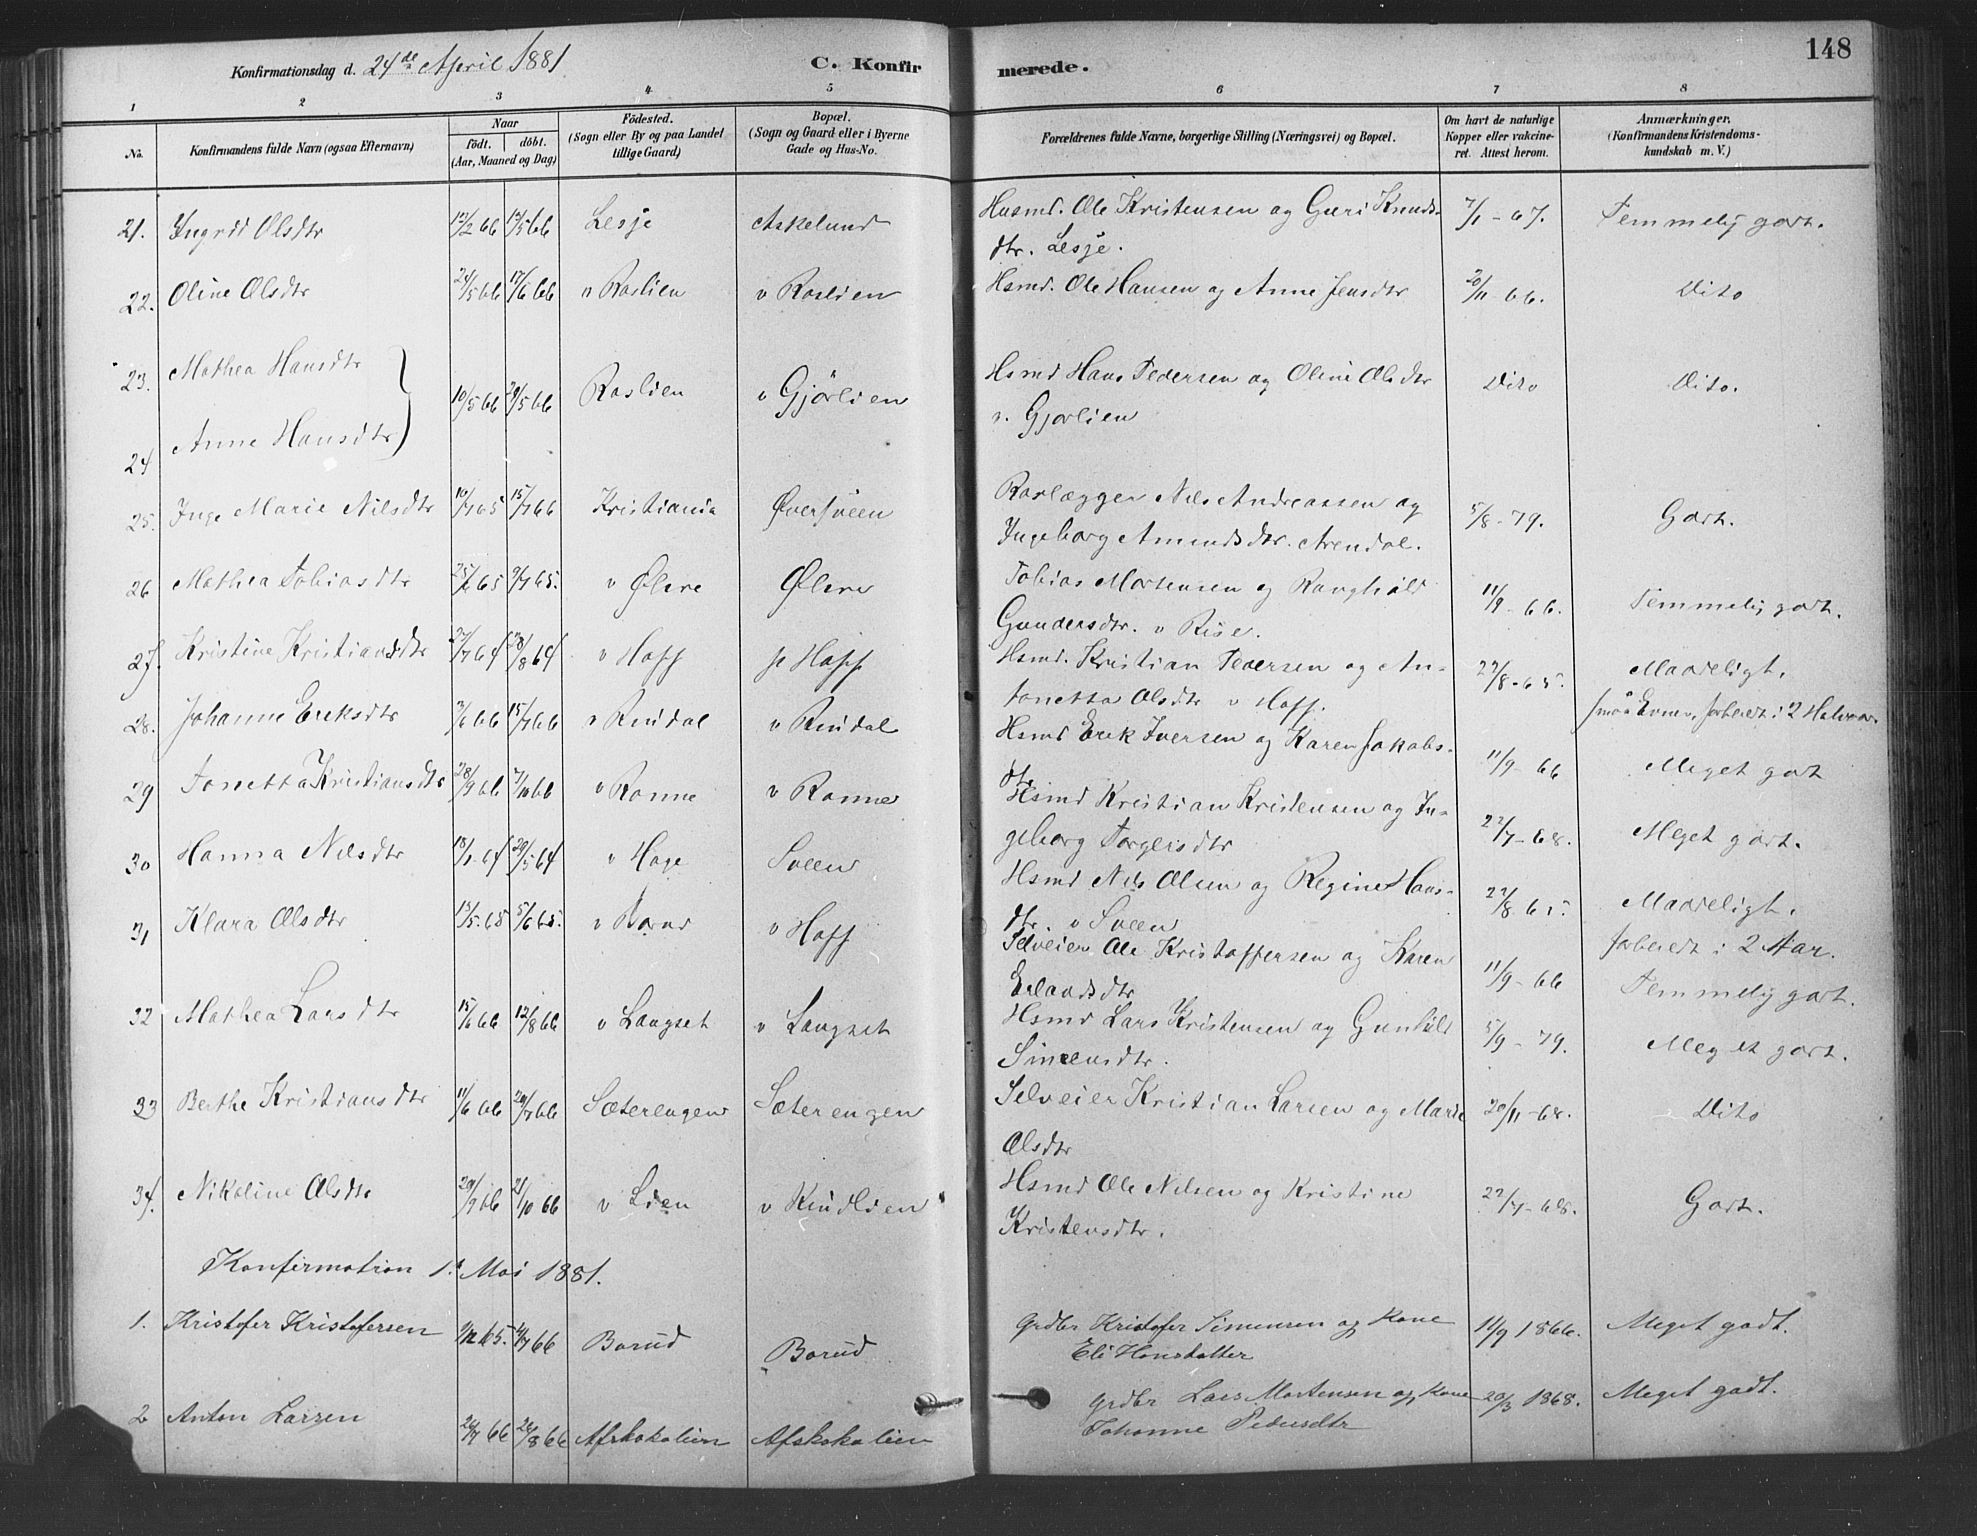 148
Konfirmationsdag d. 24de April 1881 C. Konfirmerede.
1 2 3 4 5 6 7 8
No. Konfirmandens fulde Navn (ogsaa Efternavn) Naar födt. döbt. (Aar, Maaned og Dag) Födested. (Sogn eller By og paa Landet tillige Gaard) Bopæl. (Sogn og Gaard eller i Byerne Gade og Hus-No. Forældrenes fulde Navne, borgerlige Stilling (Næringsvei) og Bopæl. Om havt de naturlige Kopper eller vakcineret. Attest herom. Anmærkninger. (Konfirmandens Kristendomskundskab m. V.)
21. Yngrid Olsdtr 12/2 66 66 Lesje Askelund Husmd. Ole Kristensen og Guri Knuds- 7/1 - 67. Temmelig godt.
dtr. Lesje.
22. Oline Olsdtr 24/5 66 17/6 66 v Roslien v Roslien Hsmd. Ole Hansen og Anne Jensdtr 20/11 - 66. Dito
23. Mathea Hansdtr 10/5 66 29/5 66 Roslien v Gjörlien Hsmd Hans Pedersen og Oline Olsdtr Dito Dito.
24 Anne Hansdtr v. Gjörlien
25. Inge Marie Nilsdtr 10/7 65 15/7 66 Kristiania Øversveen Nils Andreassen og 5/8 - 79. Godt.
Ingeborg Amundsdtr. Arendal.
26 Mathea Tobiasdtr 25/6 65 9/7 65. v Ølere Ølere Tobias Mortensen og Ranghild 11/9 - 66. Temmelig godt.
Gundersdtr. v Rise.
27. Kristine Kristiansdtr 27/7 64 28/8 64 v Hoff p Hoff Hsmd. Kristian Pedersen og An- 22/8 - 65. Maadeligt.
tonetta Olsdtr v Hoff. smaa Evner, forberedt i 2
28. Johanne Eriksdtr 66 15/7 66 v Rindal v Rindal Hsmd Erik Iversen og Karen Jakobs- 11/9 - 66 Meget godt
dtr
29 Tonetta Kristiansdtr 28/9 66 7/10 66 v Ronne v Ronne Hsmd Kristian Kristensen og In- 22/7 - 68. Meget godt.
geborg Torgersdtr
30 Hanna Nilsdtr 18/1 64 29/5 64 v Hage Sveen Hsmd Nils Olsen og Regine Hans- 22/8 - 65. Maadeligt.
dtr. v Sveen forberedt i 2 Aar.
31 Klara Olsdtr 13/5 65 5/6 65. v v Hoff Selveier Ole Kristoffersen og Karen 11/9 - 66 Temmelig godt.
Erlandsdtr
32 Mathea Larsdtr 15/6 66 12/8 66 v Langset v Langset Hsmd Lars Kristensen og Gunhild 5/9 - 79. Meget godt.
Simensdtr.
33 Berthe Kristiansdtr 11/6 66 29/7 66 Sæterengen Sæterengen Selveier Kristian Larsen og Marie 20/11 - 68. Dito
Olsdtr
34. Nikoline Olsdtr 20/9 66 21/10 66 v Lien v Kindlien Hsmd Ole Nilsen og Kristine 22/7 - 68. Godt.
Kristensdtr.
Konfirmation 1. Mai 1881.
1. Kristofer Kristofersen 65. 66 Borud Borud Grdbr Kristofer Simensen og Kone 11/9 1866. Meget godt.
Eli Hansdatter
2 Anton Larsen 66 26/8 66 Afskakalien Afskakalien Grdbr Lars Mortensen og Kone 20/3 1868. Meget godt.
Johanne Pedersdtr